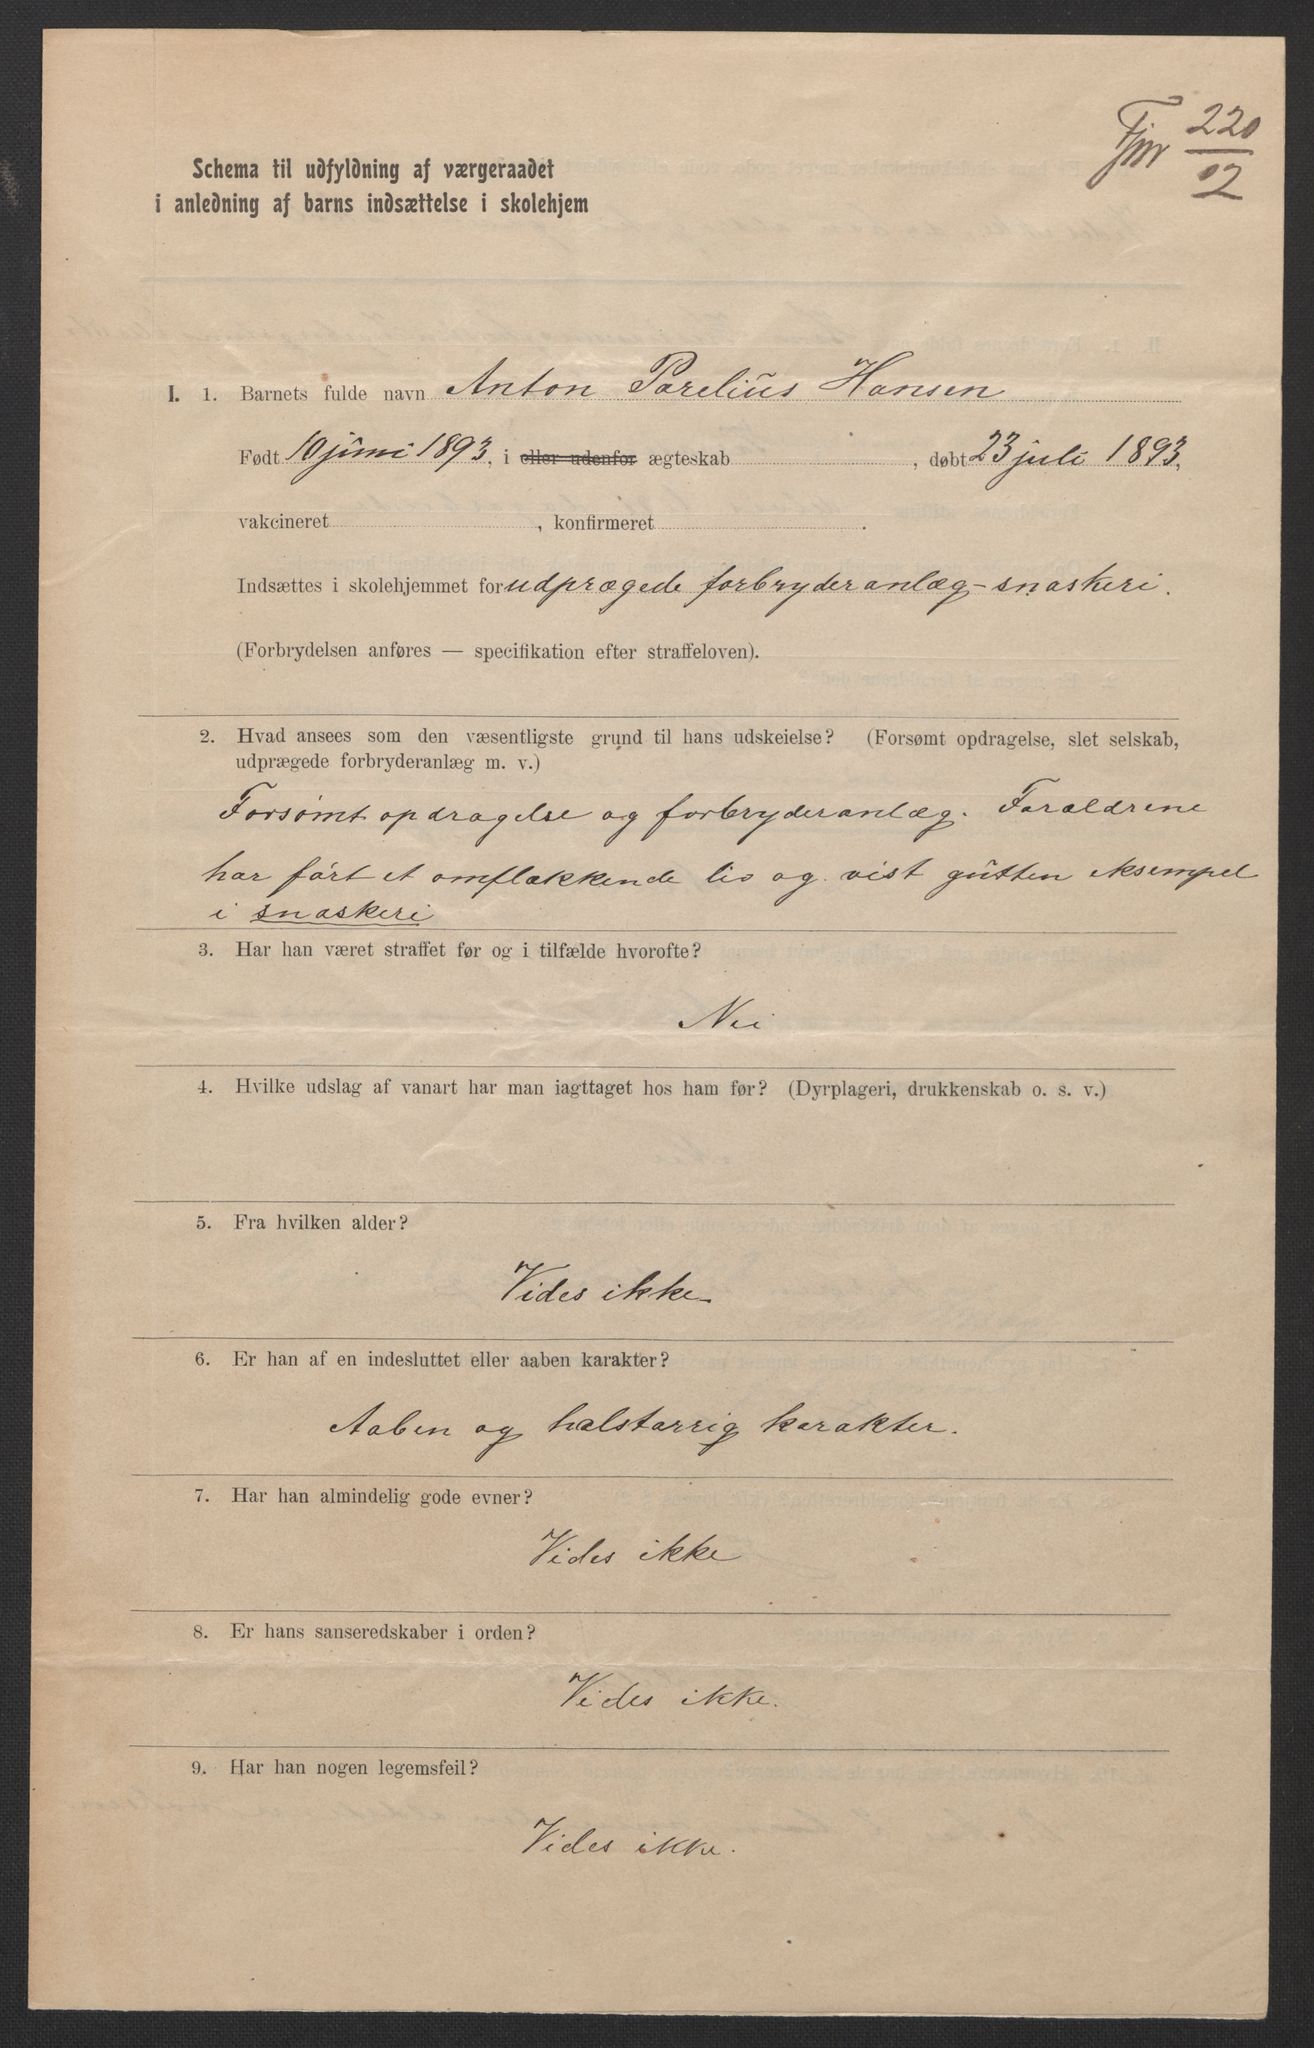 Fjm 220/02
Schema til udfyldning af værgeraadet
i anledning af barns indsættelse i skolehjem
I. 1. Barnets fulde navn Anton Parelius Hansen
Født 10 juni 1893, i eller udenfor ægteskab , døbt 23 juli 1893.
vakcineret , konfirmeret .
Indsættes i skolehjemmet for udprægede forbryderanlæg - snaskeri.
(Forbrydelsen anføres — specifikation efter straffeloven).
2. Hvad ansees som den væsentligste grund til hans udskeielse? (Forsømt opdragelse, slet selskab,
udprægede forbryderanlæg m. v.)
Forsømt opdragelse og forbryderanlæg. Forældrene
har ført et omflakkende liv og vist gutten eksempel
i snaskeri
3. Har han været straffet før og i tilfælde hvorofte?
Nei
4. Hvilke udslag af vanart har man iagttaget hos ham før? (Dyrplageri, drukkenskab o. s. v.)
5. Fra hvilken alder?
Vides ikke
6. Er han af en indesluttet eller aaben karakter?
Aaben og halstarrig karakter.
7. Har han almindelig gode evner?
Vides ikke
8. Er hans sanseredskaber i orden?
Vides ikke.
9. Har han nogen legemsfeil?
Vides ikke.